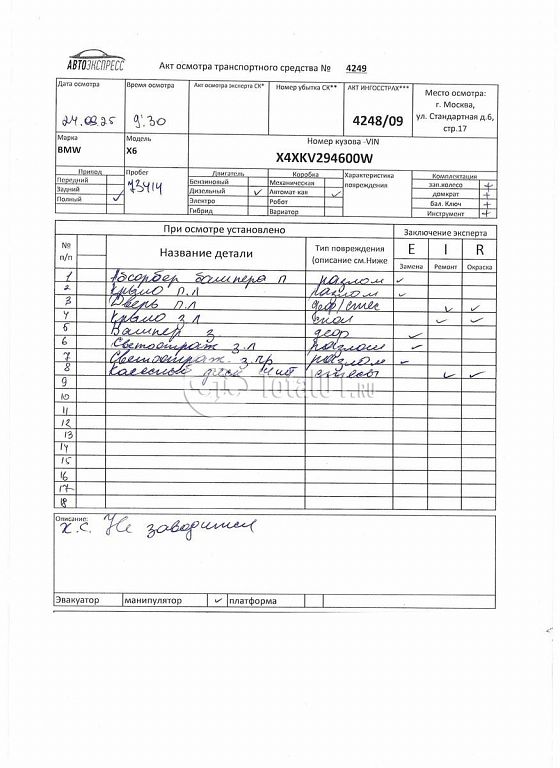 АВТОЭКСПРЕСС
Акт осмотра транспортного средства № 4249
Дата осмотра Время осмотра Акт осмотра эксперта СК* Номер убытка СК** АКТ ИНГОССТРАХ*** Место осмотра:
г. Москва,
ул. Стандартная д.6,
стр.17
9:30 4248/09
Марка Модель Номер кузова -VIN
BMW X6 X4XKV294600W
Привод Пробег Двигатель Коробка Характеристика повреждения Комплектация
Передний 73414 Бензиновый Механическая зап.колесо +
Задний Дизельный ✓ Автомат кая ✓ домкрат +
Полный ✓ Электро Робот бал. Ключ +
Гибрид Вариатор Инструмент +
При осмотре установлено Заключение эксперта
№ п/п Название детали Тип повреждения (описание см.Ниже E I R
Замена Ремонт Окраска
1 Абсорбер бампера п разлом ✓
2 Крыло п.л разлом ✓
3 Дверь п.л ✓ ✓
4 Крыло з.л скол ✓ ✓
5 Бампер з. деф ✓
6 Светоотраж з.л разлом ✓
7 Светоотраж. з.пр разлом ✓
8 ✓ ✓
9
10
11
12
13
14
15
16
17
18
Total01.RU
Описание:
х.с. Не заводится
Эвакуатор манипулятор ✓ платформа